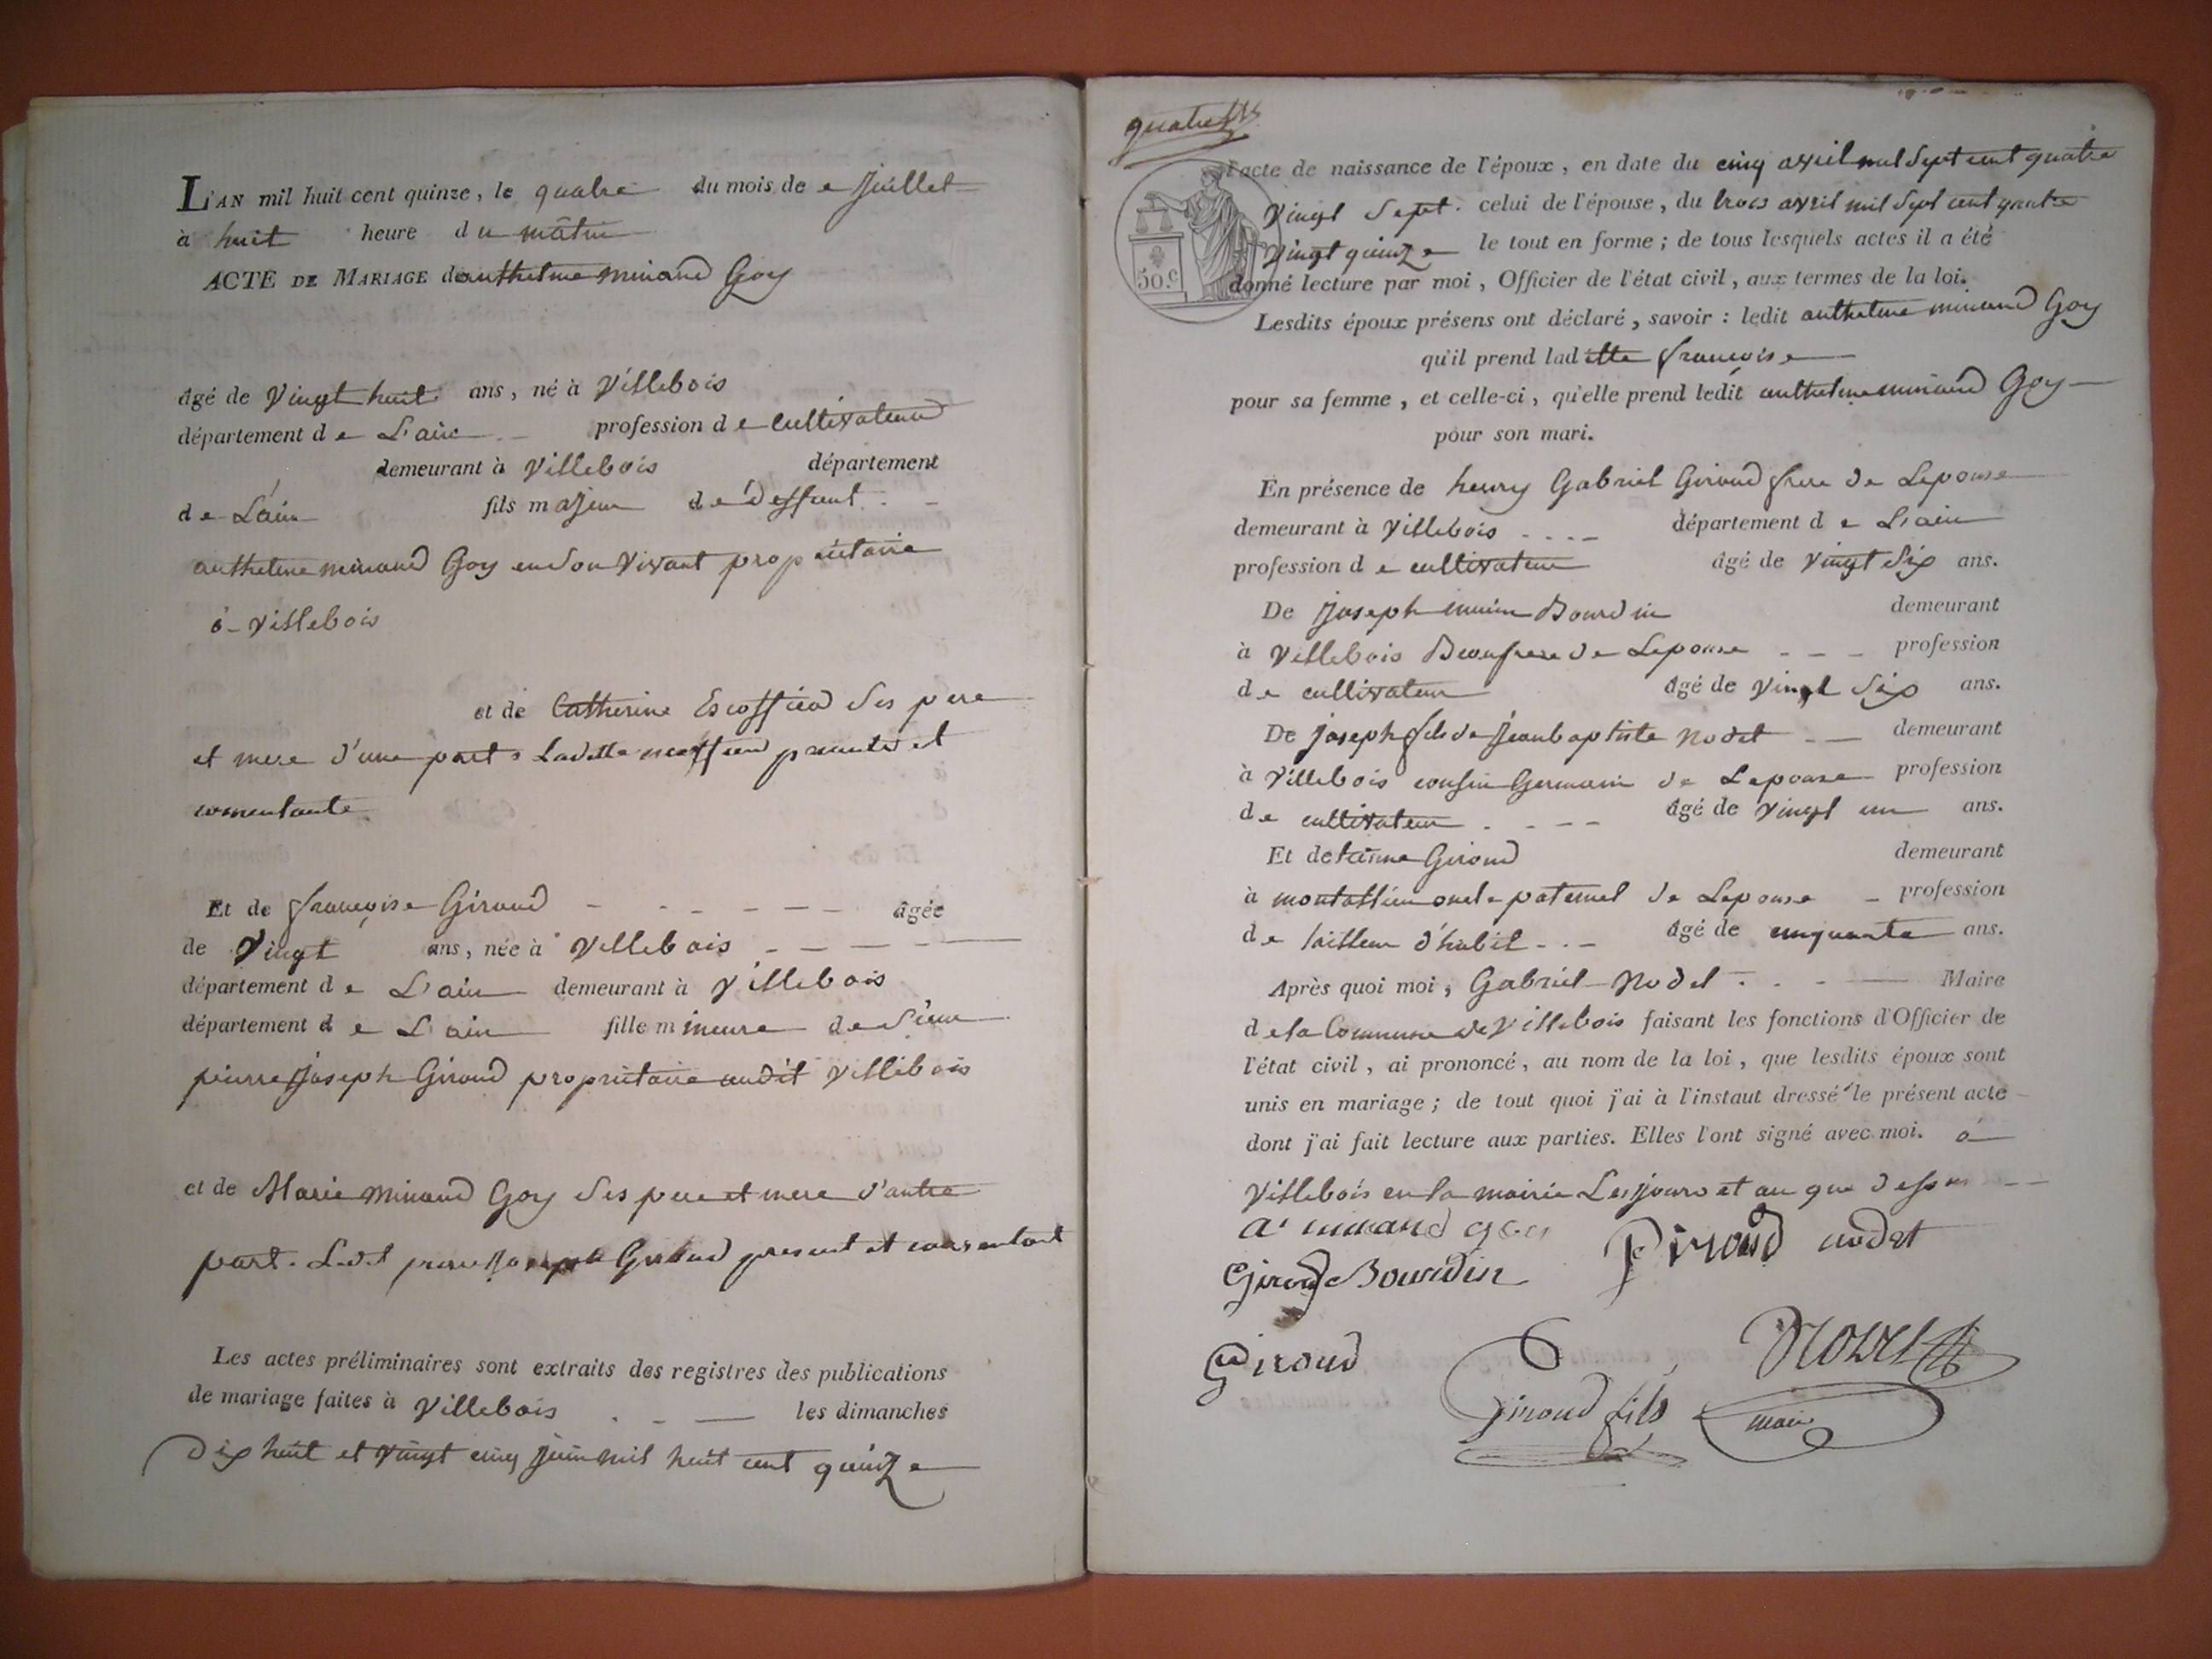 L'AN mil huit cent quinze, le quatre du mois de e Juillet
à huit heure du mâtin
ACTE DE MARIAGE danthelme minand Goy
âgé de Vingt huit ans, né à Villebois
département de L'ain profession de cultivateur
demeurant à Villebois département
de L'ain fils majeur de deffunt
anthelme minand Goy en son Vivant propriétaire
à Villebois
et de Catherine Escoffier Ses pere
et mere d'une part. Ladite presente et
consentante
Et de françoise Giroud âgée
de Vingt ans, née à Villebois
département de L'ain demeurant à Villebois
département de L'ain fille mineure de Sieur
pierre Joseph Giroud propriétaire audit Villebois
et de Marie Minand Goy Ses pere et mere d'autre
part. Ledit pierre Joseph Giroud present et consentant
Les actes préliminaires sont extraits des registres des publications
de mariage faites à Villebois les dimanches
Dix huit et Vingt cinq Juin mil huit cent quinze
quatre
50.c
l'acte de naissance de l'époux, en date du cinq avril mil Sept cent quatre
Vingt Sept. celui de l'épouse, du trois avril mil Sept cent quatre
Vingt quinze le tout en forme; de tous lesquels actes il a été
donné lecture par moi, Officier de l'état civil, aux termes de la loi.
Lesdits époux présens ont déclaré, savoir: ledit anthelme minand Goy
qu'il prend laditte françoise
pour sa femme, et celle-ci, qu'elle prend ledit anthelme minand Goy
pour son mari.
En présence de henry Gabriel Giroud frere de Lepouse
demeurant à Villebois département de L'ain
profession de cultivateur âgé de Vingt Six ans.
De Joseph Bourdin demeurant
à Villebois Beaufrere de Lepouse profession
de cultivateur âgé de Vingt Six ans.
De Joseph fils de Jean baptiste Nodet demeurant
à Villebois cousin Germain de Lepouse profession
de cultivateur âgé de Vingt un ans.
Et de Giroud demeurant
à montallieu oncle paternel de Lepouse profession
de tailleur d'habit âgé de cinquante ans.
Après quoi moi, Gabriel Nodet Maire
de la Commune de Villebois faisant les fonctions d'Officier de
l'état civil, ai prononcé, au nom de la loi, que lesdits époux sont
unis en mariage; de tout quoi j'ai à l'instant dressé le présent acte
dont j'ai fait lecture aux parties. Elles l'ont signé avec moi. à
Villebois en la mairie Les jours et an que dessus
a minand goy Giroud nodet
Giroud Bourdin
Giroud
Nodet
Giroud fils maire